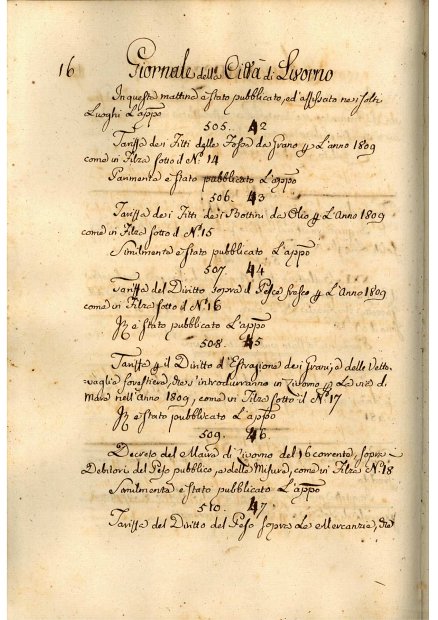 16 Giornale della Città di Livorno
In questa mattina è stato pubblicato, ed affissato nei soliti
Luoghi L'appo
505. 42
Tariffa dei Fitti delle Fosse da Grano p L'anno 1809
come in Filza sotto il N: 14
Parimente è stato pubblicato L'appo
506. 43
Tariffa dei Fitti dei Bottini da Olio p L'Anno 1809
come in Filza sotto il N. 15
Similmente è stato pubblicato L'appo
507. 44
Tariffa del Diritto sopra il Pesce fresco p L'Anno 1809
come in Filza sotto il N. 16
È stato pubblicato L'appo
508. 45
Tariffa p il Diritto d'Estrazione dei Grani, e delle Vetto-
vaglie forestiere, che s'introdurranno in Livorno p La via di
Mare nell'anno 1809, come in Filza sotto il N. 17
è stato pubblicato L'appo
509. 46.
Decreto del Maire di Livorno del 16 corrente, sopra
Debitori del Peso pubblico, e della Misura, come in Filza N. 18
Similmente è stato pubblicato L'appo
510. 47.
Tariffa del Diritto del Peso sopra Le Mercanzie, che